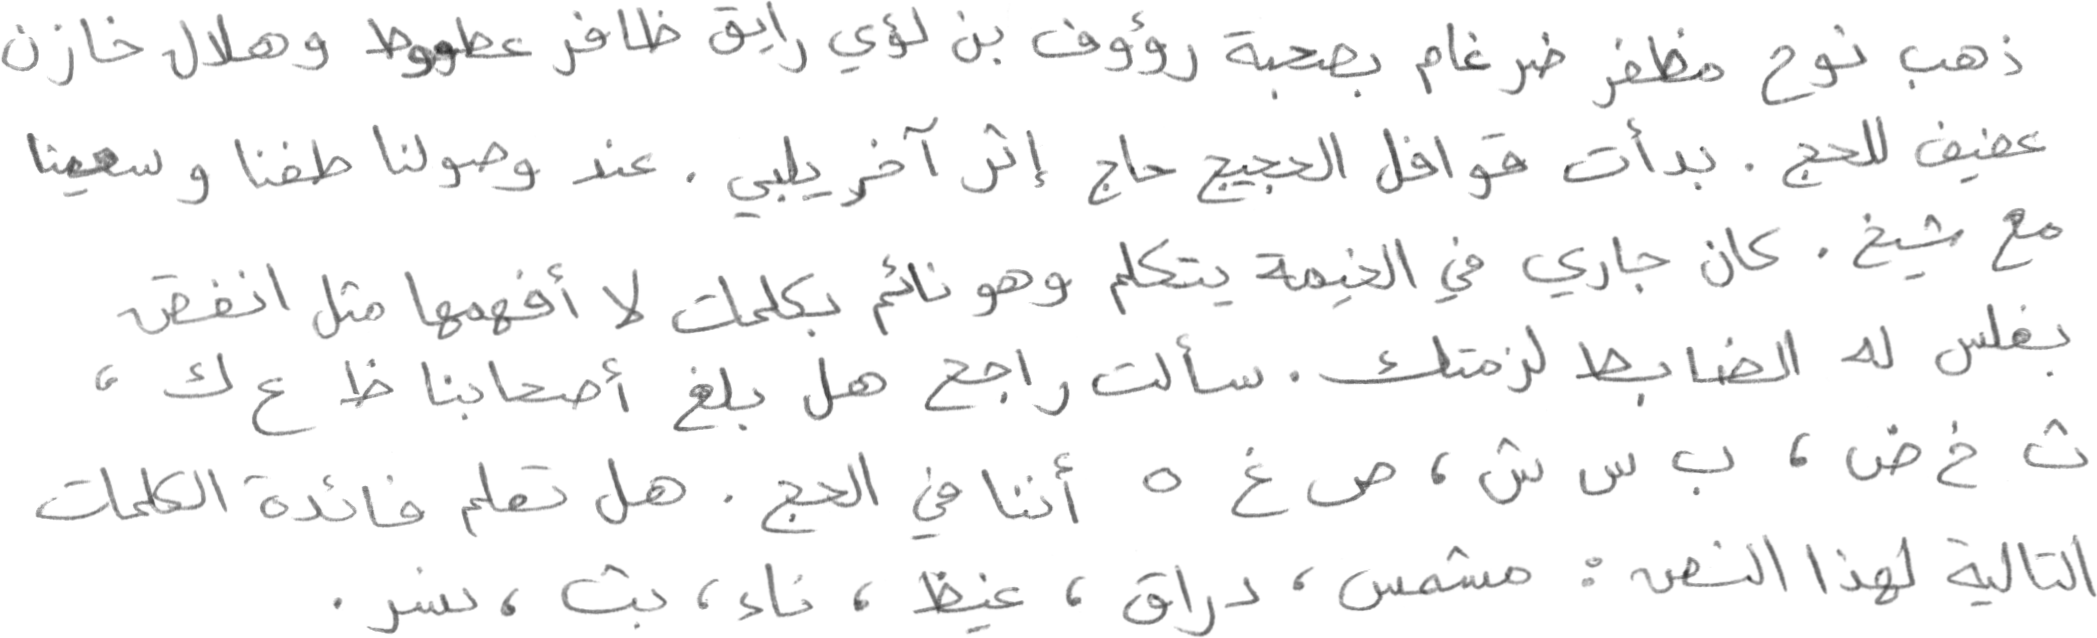 ذهب نوح مظفر ضرغام بصحبة رؤوف بن لؤي رايق ظافر عطووط وهلال خازن
عفيف للحج . بدأت قوافل الحجيج حاج إثر آخر يلبي . عند وصولنا طفنا وسعينا
مع شيخ . كان جاري في الخيمة يتكلم وهو نائم بكلمات لا أفهمها مثل انفض
بغلس له الضابط لزمتك . سألت راجح هل بلغ أصحابنا ظ ع ك ،
ث خ ض ، ب س ش ، ص غ ه أننا في الحج . هل تعلم فائدة الكلمات
التالية لهذا النص : مشمس ، دراق ، غيظ ، ناء ، بث ، نسر .